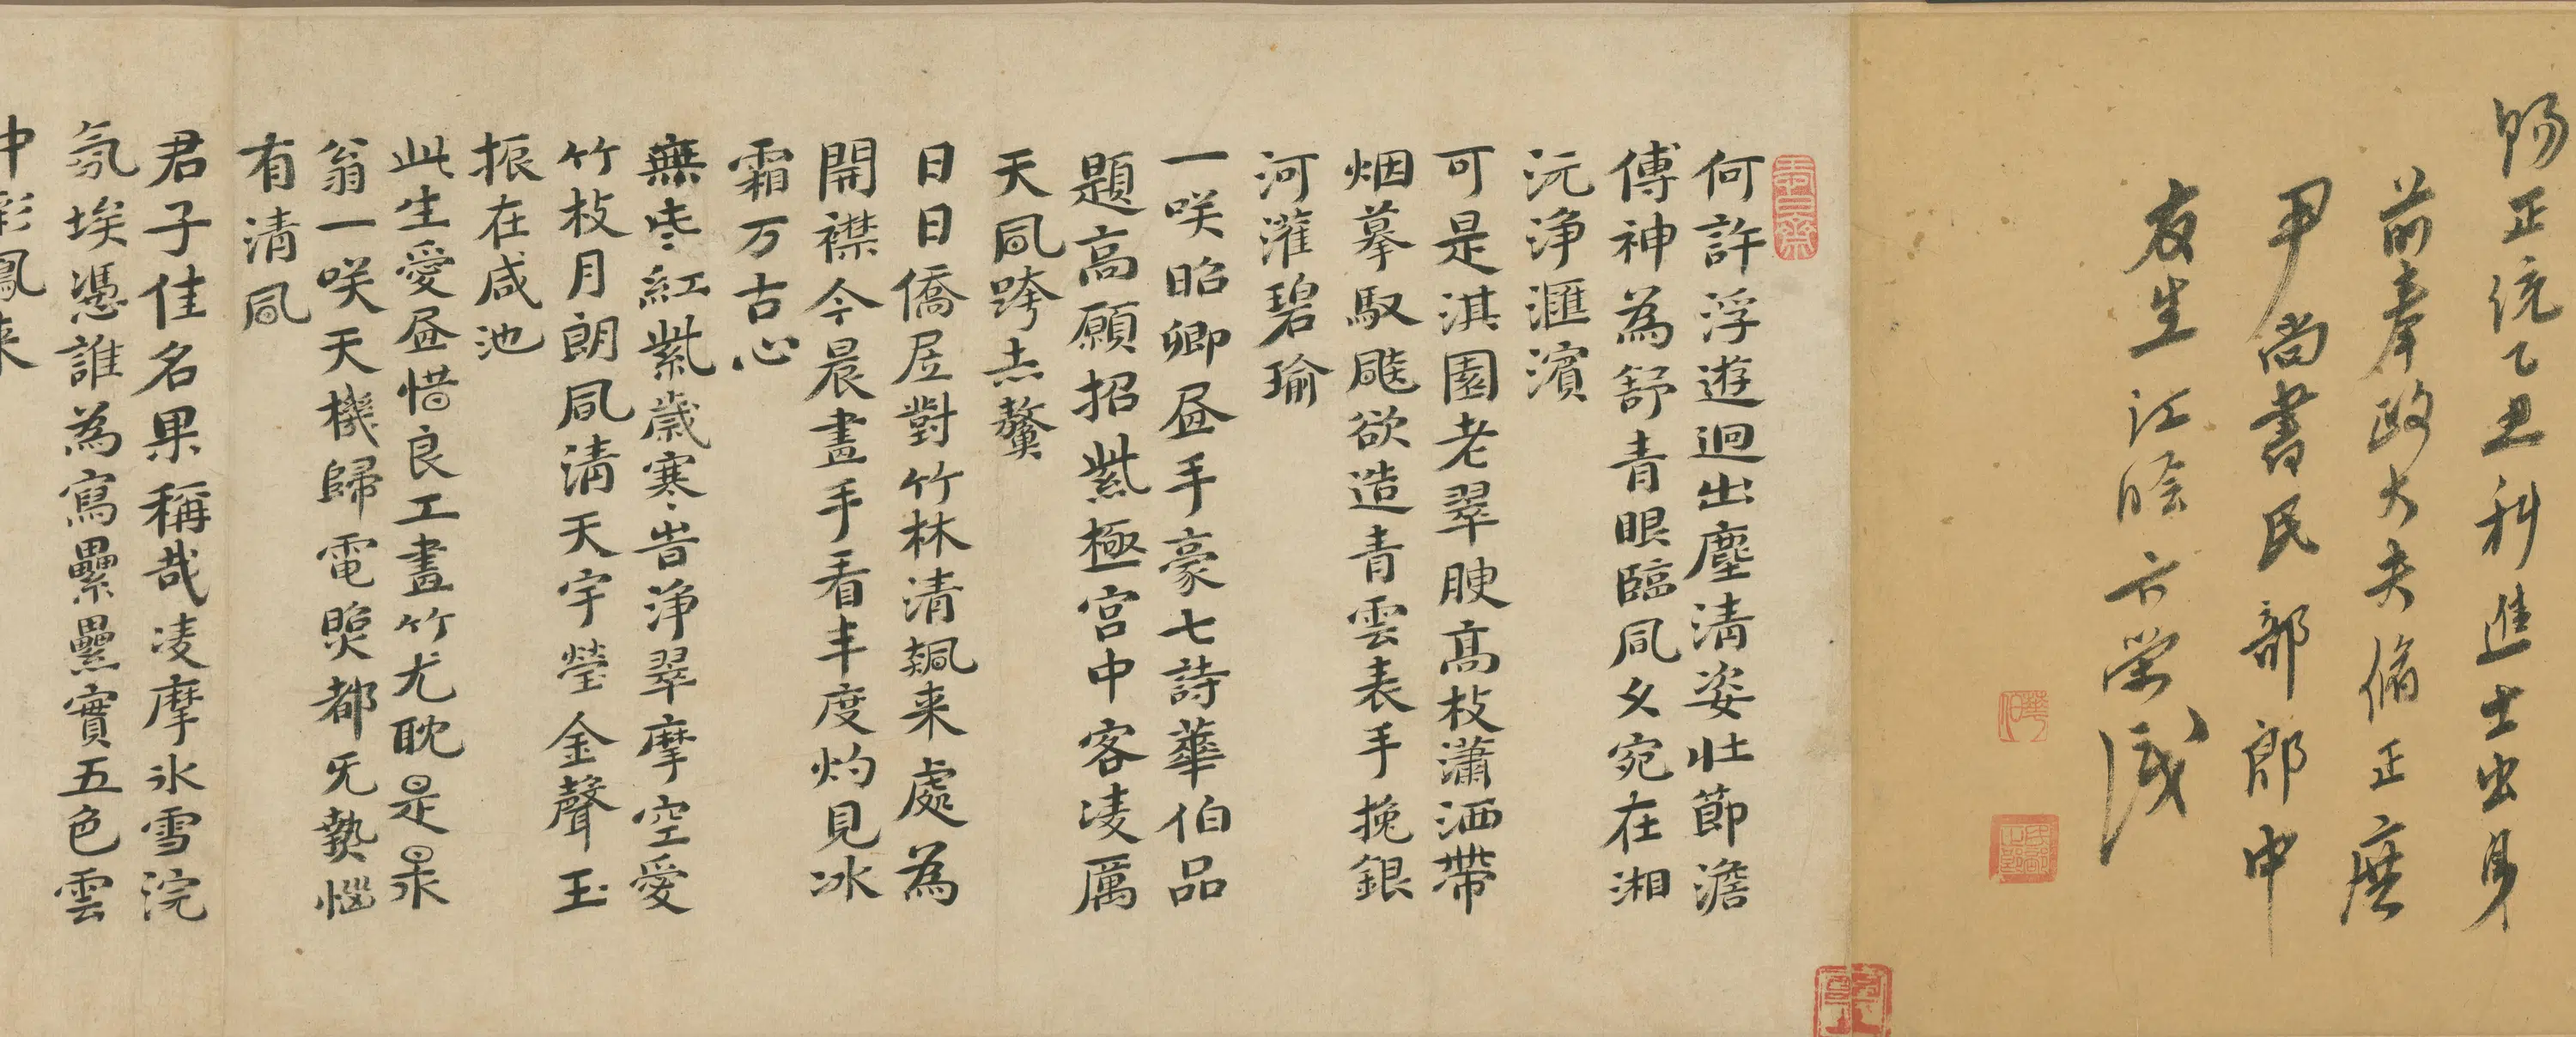 賜正統乙丑科進士出身
前奉政大夫脩正庶
尹尚書民部郎中
友生江陰卞榮識
何許浮遊迥出塵清姿壯節澹
傅神為舒青眼臨風夂宛在湘
沅淨滙濱
可是淇園老翠腴高枝瀟洒帶
烟摹馭飈欲造青雲表手挽銀
河灌碧瑜
一咲昭卿昼手豪七詩華伯品
題高願招紫極宮中客凌厲
天風跨去鰲
日日僑居對竹林清飆来處為
開襟今晨畫手看丰度灼見冰
霜万古心
無些紅紫歲寒皆淨翠摩空愛
竹枝月朗風清天宇瑩金聲玉
振在咸池
此生愛昼惜良工畫竹尤耽是杲
翁一咲天機歸電煚都旡熱惱
有清風
君子佳名果稱哉凌摩氷雪浣
氛埃憑誰為寫纍纍實五色雲
中彩鳳来